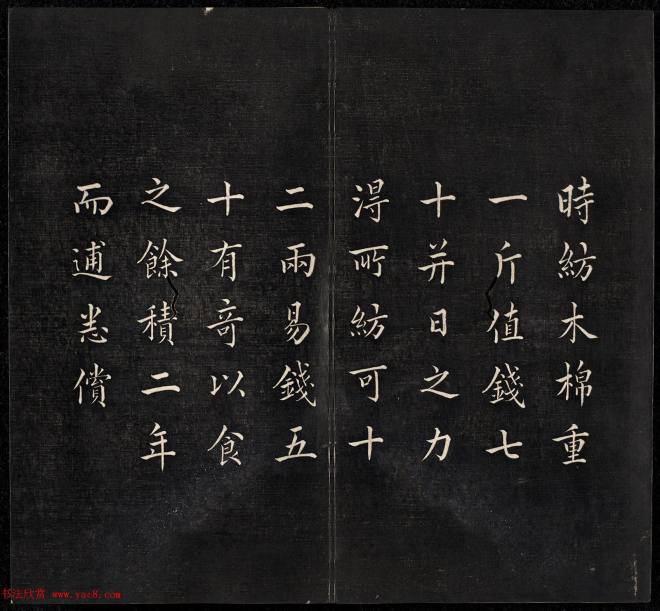 時紡木棉重
一斤值錢七
十并日之力
淂所紡可十
二兩易錢五
十有奇以食
之餘積二年
而逋悉償
书法欣赏 www.yac8.com